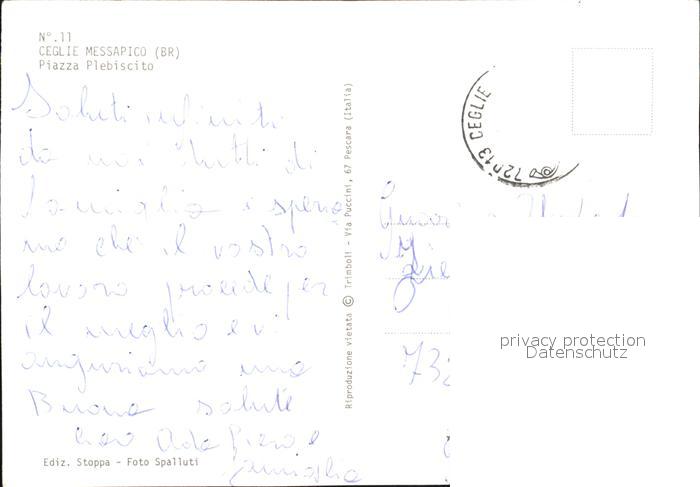 N°.11
CEGLIE MESSAPICO (BR)
Piazza Plebiscito
Saluti infiniti
da noi tutti di
famiglia e speria
mo che il vostro
lavoro procede per
il meglio e vi
auguriamo una
Buona salute
ciao Ada Piero e
famiglia
Ediz. Stoppa - Foto Spalluti
Riproduzione vietata © Trimboli - Via Puccini, 67 Pescara (Italia)
72013 CEGLIE
privacy protection
Datenschutz